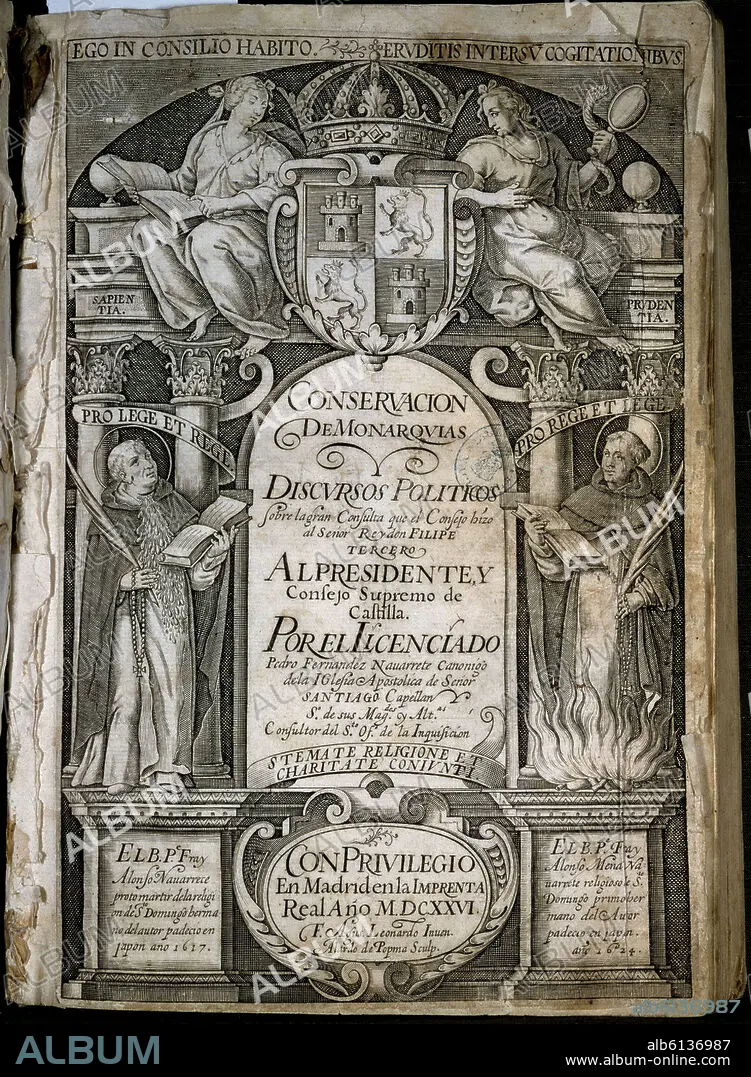 EGO IN CONSILIO HABITO. ERVDITIS INTERSV COGITATIONIBVS.
SAPIEN
TIA.
PRVDEN
TIA.
PRO LEGE ET REGE
PRO REGE ET LEGE
CONSERVACION
DE MONARQVIAS
Y
DISCVRSOS POLITICOS
sobre la gran Consulta que el Consejo hizo
al Señor Rey don FILIPE
TERCERO
AL PRESIDENTE, Y
Consejo Supremo de
Castilla.
POR EL LICENCIADO
Pedro Fernandez Nauarrete Canonigo
de la IGlesia Apostolica de Señor
SANTIAGO Capellan Y
S.º de sus Mag.des y Alt.as
Consultor del S.to Of.º de la Inquisicion
STEMATE RELIGIONE ET
CHARITATE CONIVNTI
EL B. P.e Fray
Alonso Nauarrete
protomartir de la religi
on de S.to Domingo herma
no del autor padecio en
japon año 1617.
CON PRIVILEGIO
En Madrid en la IMPRENTA
Real Año M.DCXXVI.
Leonardo Inuen.
de Popma Sculp.
EL B. P.e Fray
Alonso Mena Na
uarrete religioso de S.to
Domingo primo her
mano del Autor
padecio en japon.
año 1624.
ALBUM
alb6136987
ALBUM
alb6136987
www.album-online.com